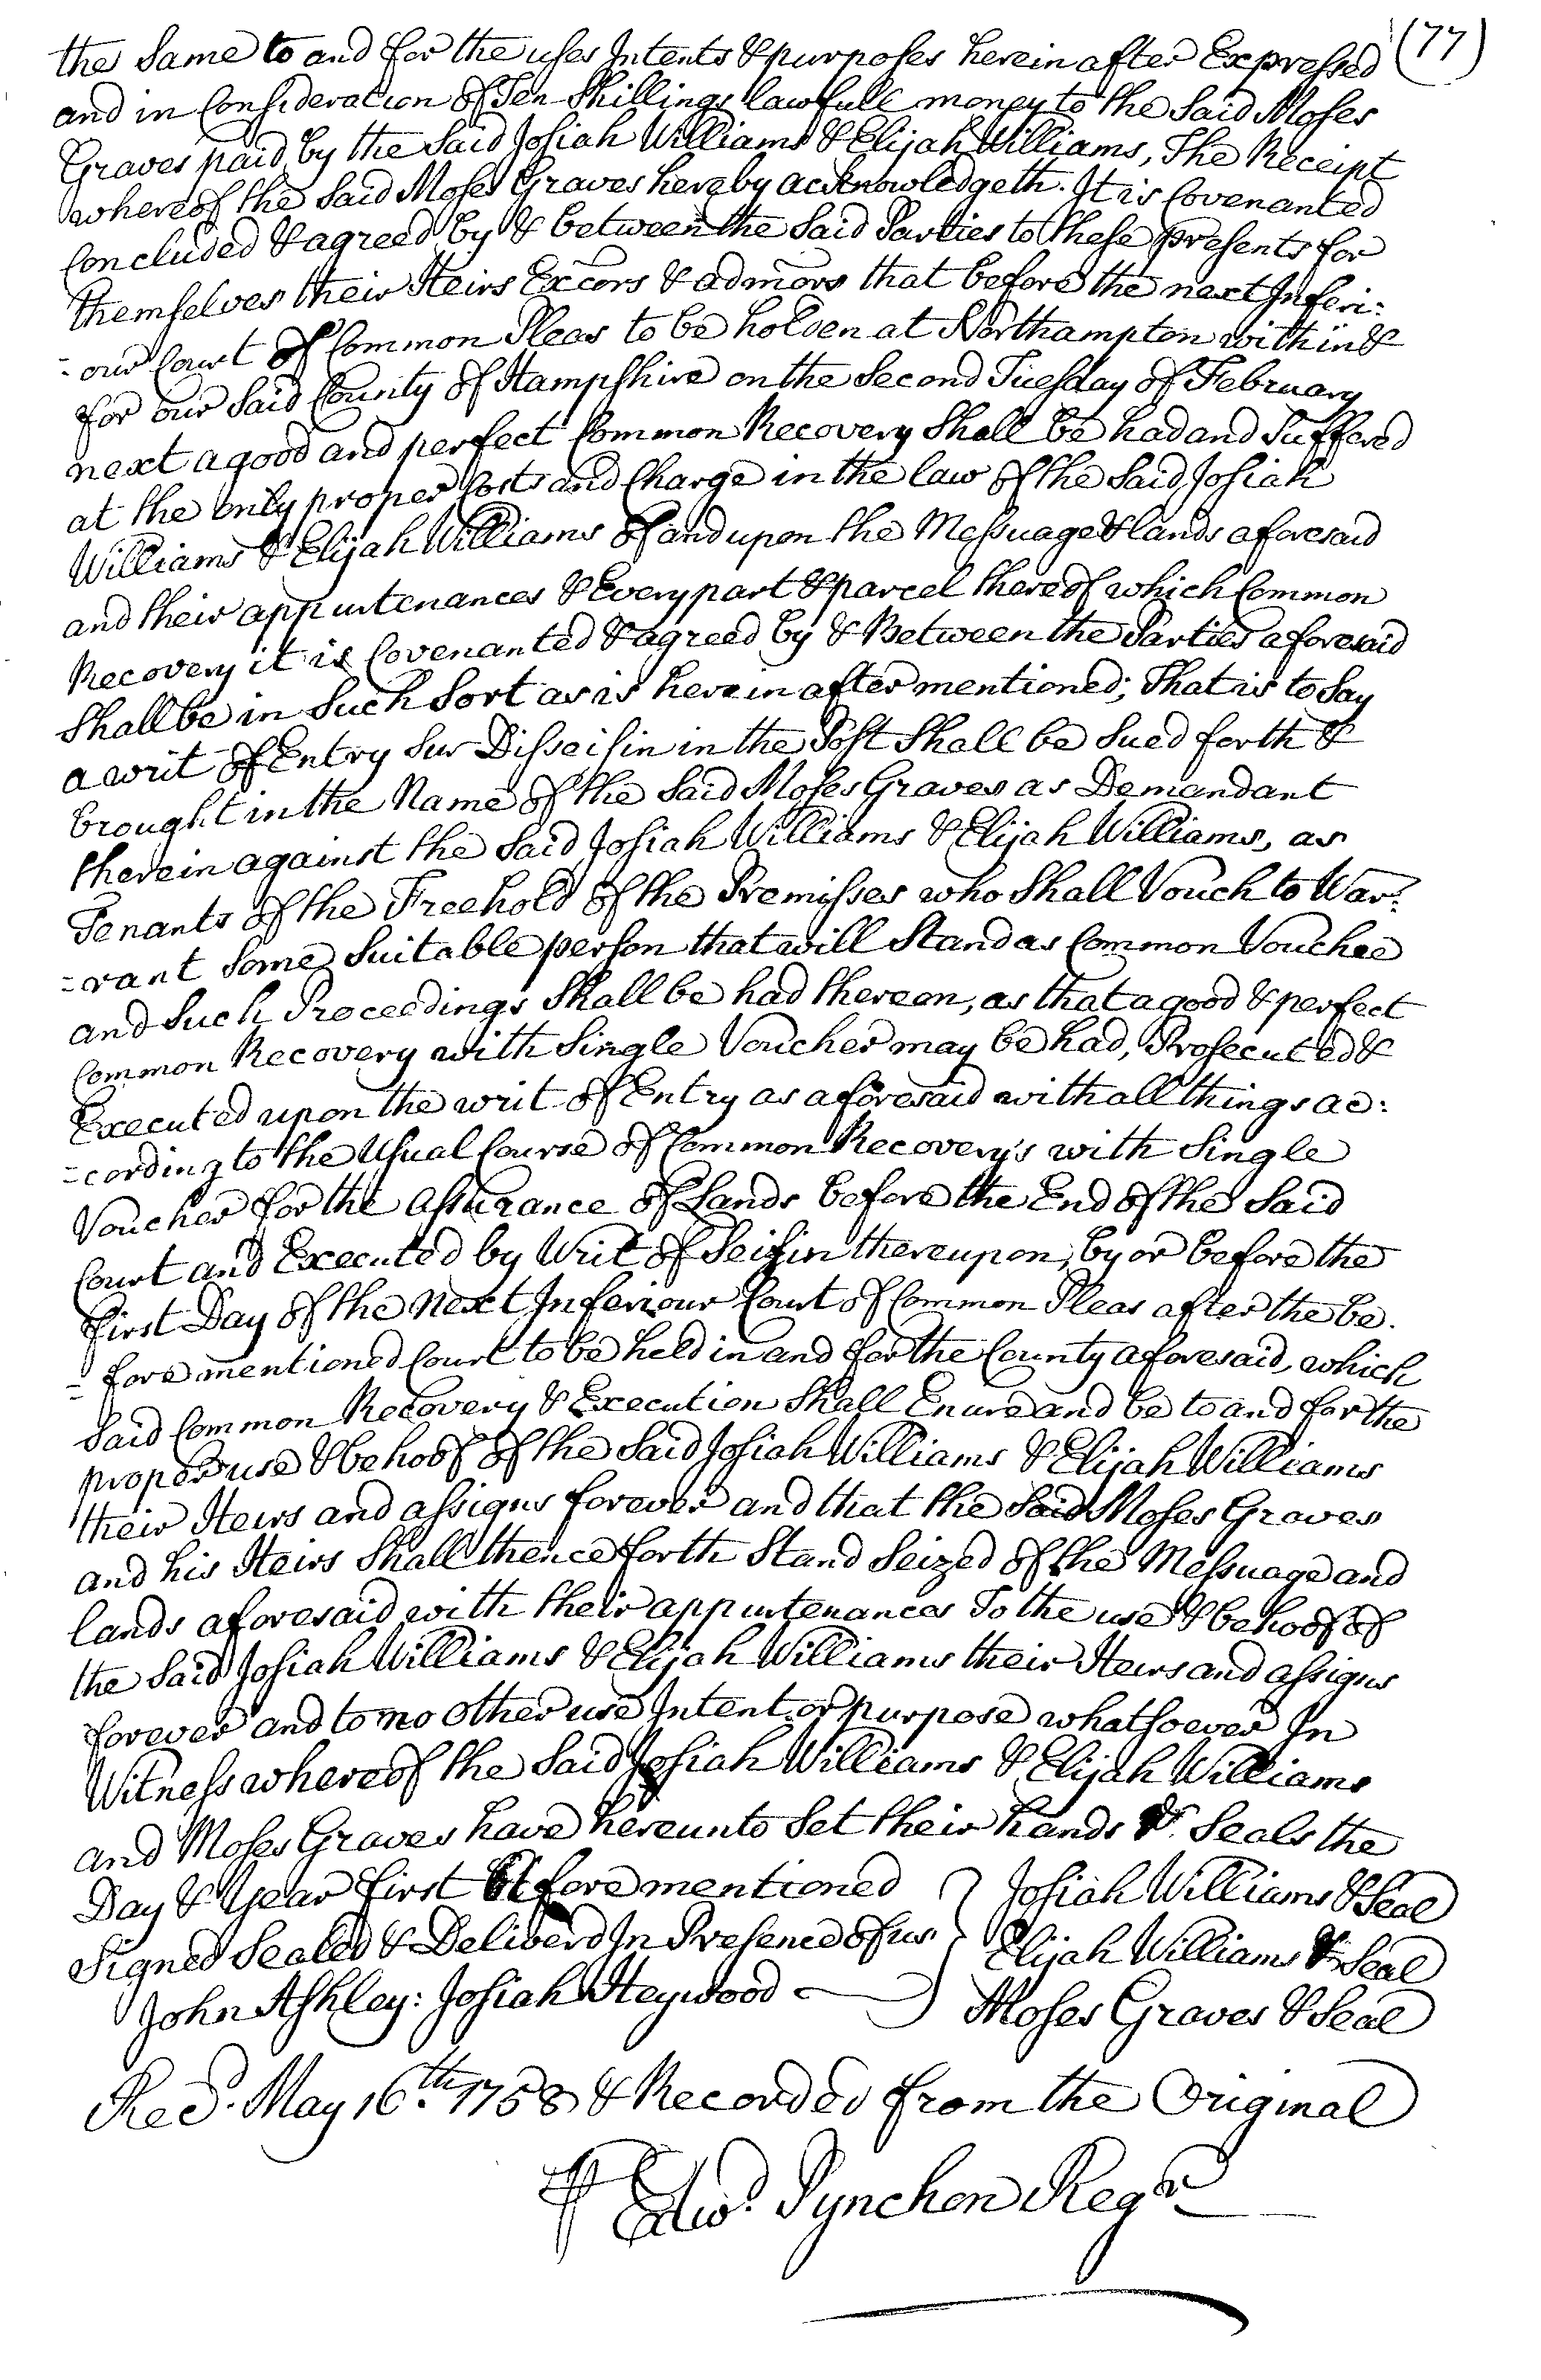 (77)
the Same to and for the uses Intents & purposes herein after Expressed
and in Consideration of Ten Shillings lawfull money to the Said Moses
Graves paid by the Said Josiah Williams & Elijah Williams, The Receipt
whereof the Said Moses Graves hereby acknowledgeth. It is Covenanted
Concluded & agreed by & between the Said Parties to these presents for
themselves their Heirs Excors & admors that before the next Inferi:
=our Court of Common Pleas to be holden at Northampton within &
for our Said County of Hampshire on the Second Tuesday of February
next a good and perfect Common Recovery Shall be had and Suffered
at the only proper Costs and Charge in the law of the Said Josiah
Williams & Elijah Williams of and upon the Messuage & lands aforesaid
and their appurtenances & Every part & parcel thereof which Common
Recovery it is Covenanted & agreed by & Between the Parties aforesaid
Shall be in Such Sort as is herein after mentioned; That is to Say
a writ of Entry Sur Disseisin in the Post Shall be Sued forth &
brought in the Name of the Said Moses Graves as Demandant
therein against the Said Josiah Williams & Elijah Williams, as
Tenants of the Freehold of the Premisses who Shall Vouch to War:
=rant Some Suitable person that will Stand as Common Vouchee
and Such Proceedings Shall be had thereon, as that a good & perfect
Common Recovery with Single Voucher may be had, Prosecuted &
Executed upon the writ of Entry as aforesaid with all things ac:
=cording to the Usual Course of Common Recovery's with Single
Voucher for the assurance of Lands before the End of the Said
Court and Executed by Writ of Seizin thereupon, by or before the
first Day of the Next Inferiour Court of Common Pleas after the be.
=fore mentioned Court to be held in and for the County aforesaid, which
Said Common Recovery & Execution Shall Enure and be to and for the
proper use & behoof of the Said Josiah Williams & Elijah Williams
their Heirs and assigns forever and that the Said Moses Graves
and his Heirs Shall thence forth Stand Seized of the Messuage and
lands aforesaid with their appurtenances To the use & behoof of
the Said Josiah Williams & Elijah Williams their Heirs and assigns
forever and to no other use Intent or purpose whatsoever In
Witness whereof the Said Josiah Williams & Elijah Williams
and Moses Graves have hereunto Set their hands & Seals the
Day & Year first before mentioned } Josiah Williams & Seal
Signed Sealed & Deliverd In Presence of us. } Elijah Williams & Seal
John Ashley: Josiah Heywood } Moses Graves & Seal
Recd. May 16th. 1758 & Recorded from the Original
Edwd. Pynchon Regr